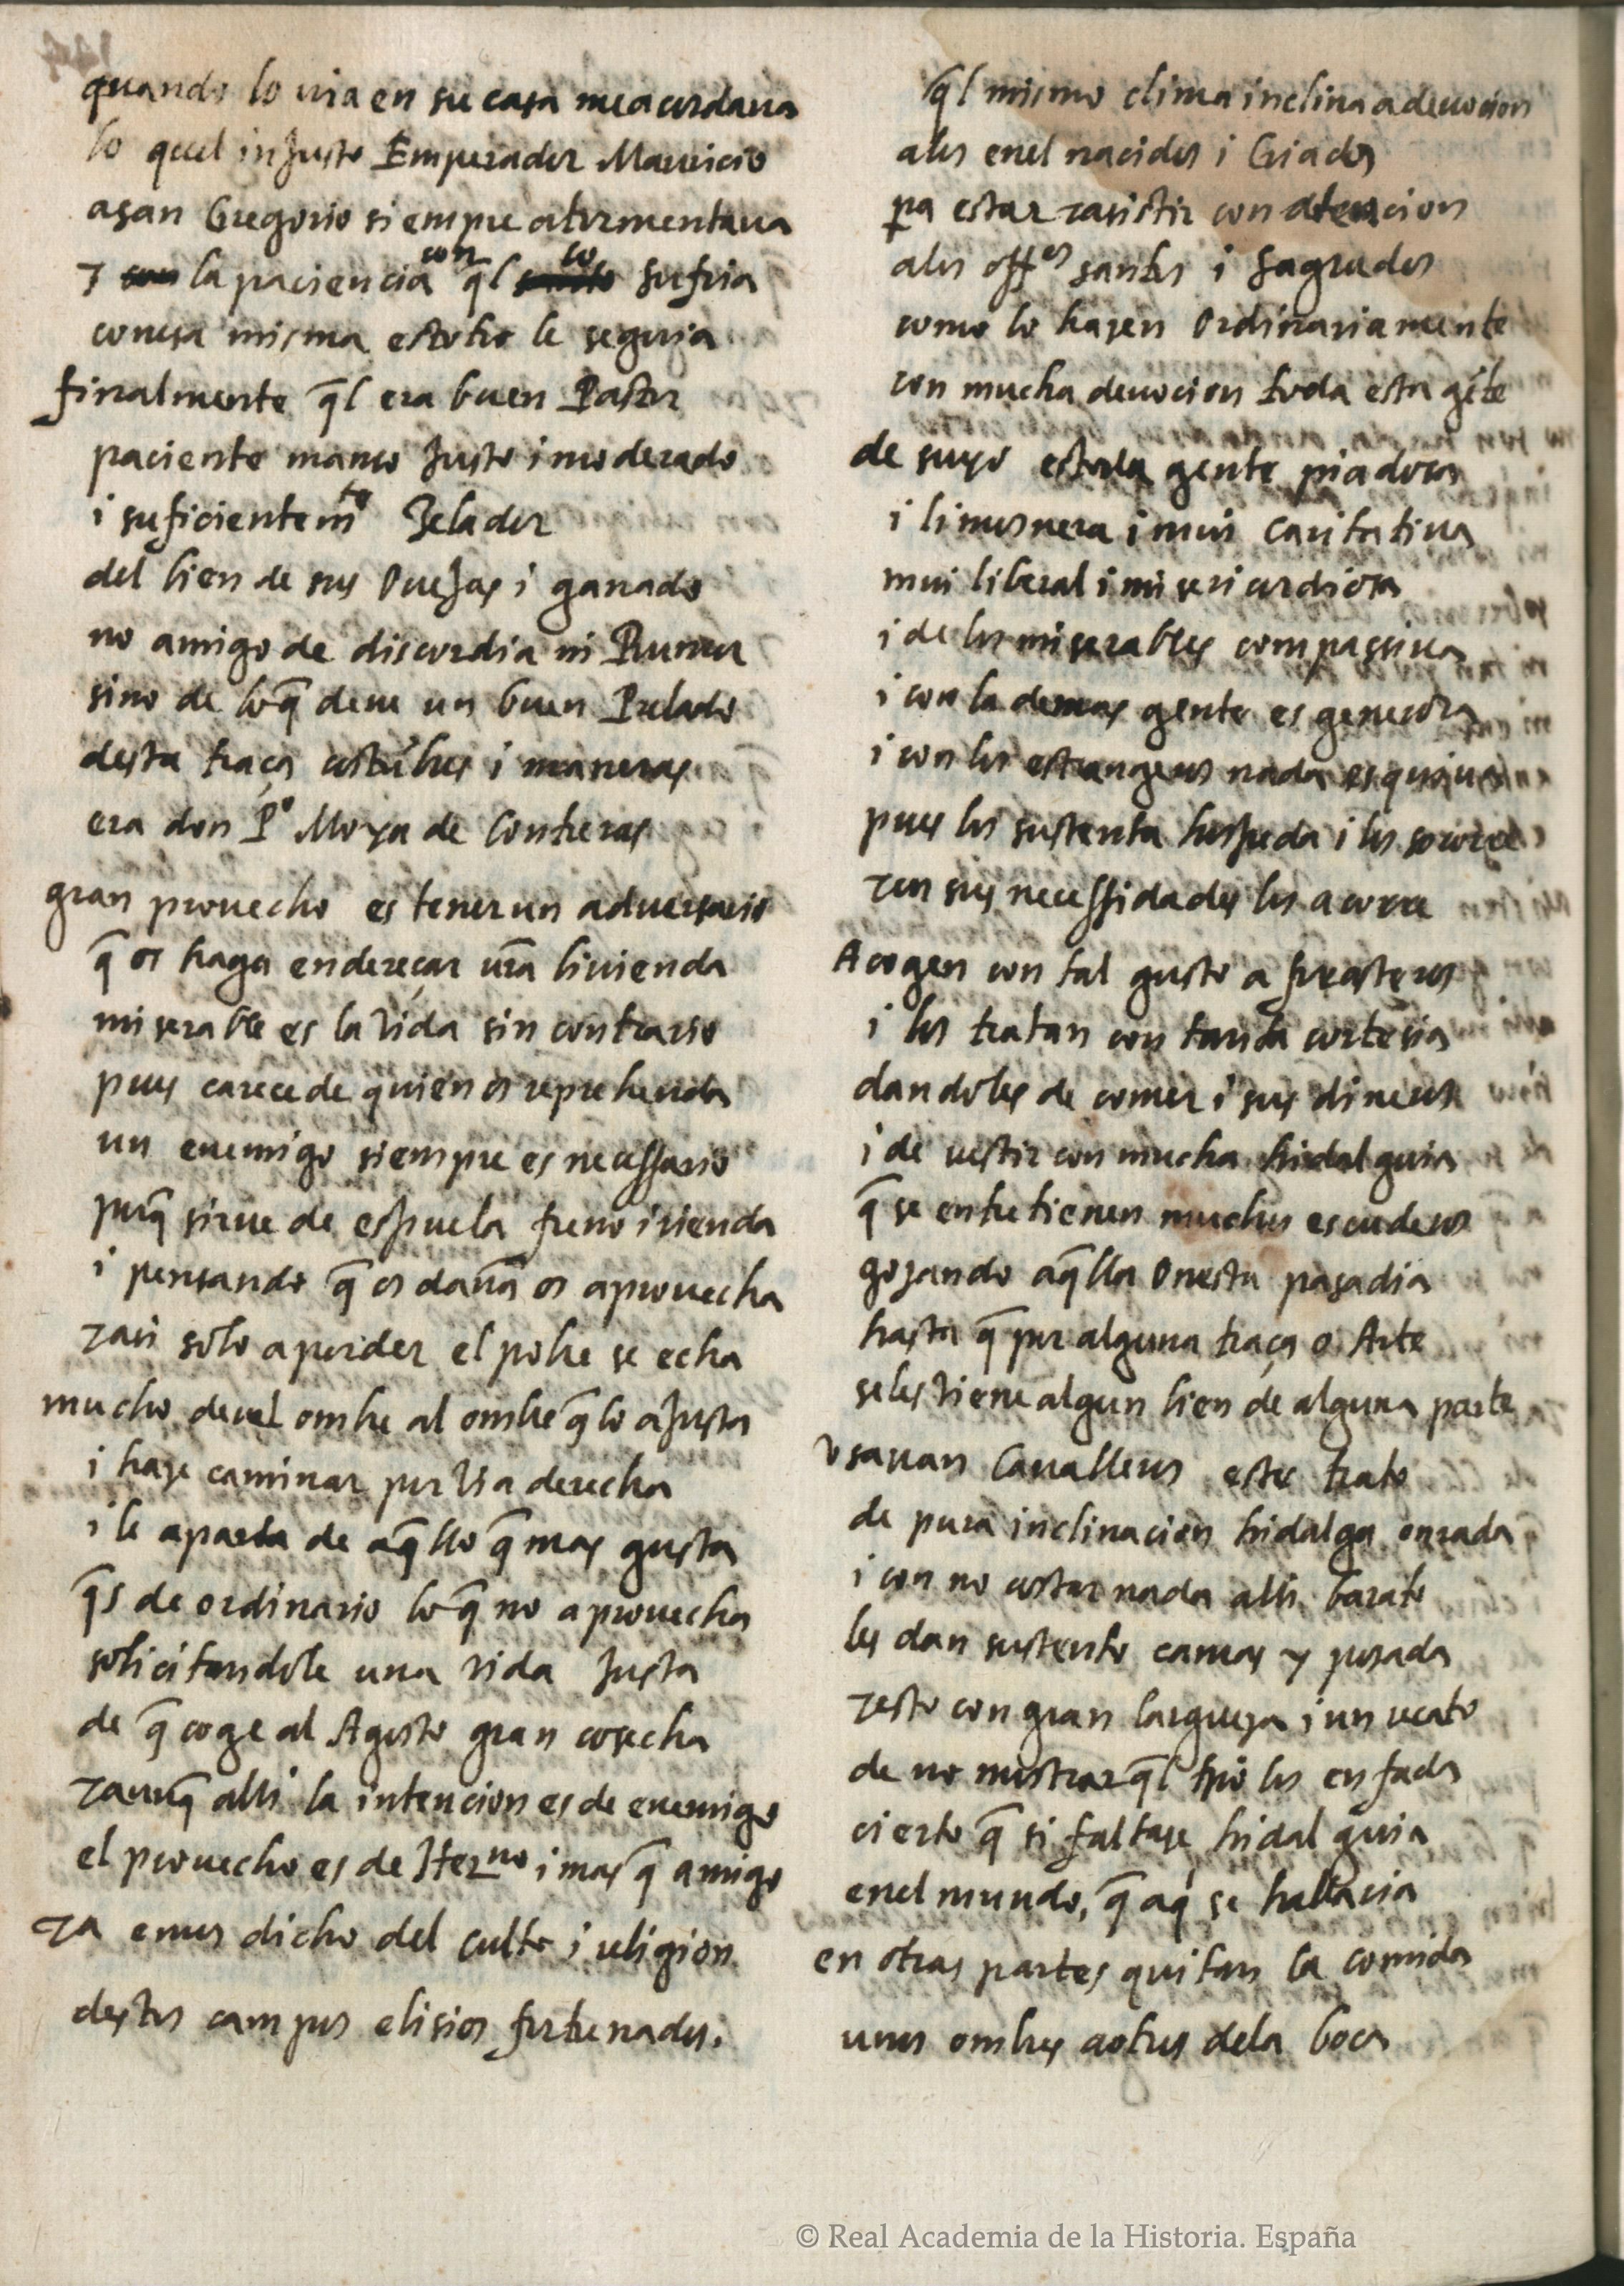 quando lo uia en su casa me acordaua
lo quel injusto Emperador Mauricio
a san Gregorio siempre atormentaua
7 con la paciencia con q̃l lo sufria
con esa misma estotro le seguia
finalmente q̃l era buen Pastor
paciente manso justo i moderado
i suficientemte Zelador
del bien de sus Ouejas i ganado
no amigo de discordia ni Rumor
sino de loq̃ deue un buen Prelado
desta traça costũbres i maneras
era don Po Moya de Contreras
gran prouecho es tener un aduersario
q̃ os haga endereçar ũra biuienda
miserable es la vida sin contrario
pues carece de quien os reprehenda
un enemigo siempre es necessario
porq̃ sirue de espuela freno i rienda
i pensando q̃ os daña os aprouecha
7 asi solo a perder el pobre se echa
mucho deuel ombre al ombre q̃ lo ajusta
i haze caminar por via derecha
i le aparta de aq̃llo q̃ mas gusta
q̃s de ordinario lo q̃ no aprouecha
solicitandole una vida justa
de q̃ coge al Agosto gran cosecha
7 aunq̃ alli la intencion es de enemigo
el prouecho es de Herno i mas q̃ amigo
7a emos dicho del culto i religion
destos campos elisios fortunados.
q̃l mismo clima inclina a deuocion
a los enel nacidos i Criados
pa estar 7 asistir con atencion
a los offos santos i sagrados
como lo hazen Ordinariamente
con mucha deuocion toda esta gẽte
de suyo esta la gente piadosa
i limosnera i mui caritatiua
mui liberal i misericordiosa
i de los miserables compassiua
i con la demas gente es generosa
i con los estrangeros nada esquiua
pues los sustenta hospeda i los socorre
7 en sus necessidades los acorre
Acogen con tal gusto a forasteros
i los tratan con tanta cortesia
dandoles de comer i sus dineros
i de uestir con mucha hidalguia
q̃ se entretienen muchos escuderos
gozando aq̃lla Onesta pasadia
hasta q̃ por alguna traça o Arte
se les viene algun bien de alguna parte
vsauan Caualleros este trato
de pura inclinacion hidalga onrada
i con no costar nada alli barato
les dan sustento camas y posada
7 esto con gran largueza i un recato
de no mostrar q̃l tpo los enfada
cierto q̃ si faltase hidalguia
enel mundo, q̃ aq́ se hallaria
en otras partes quitan la comida
unos ombres a otros dela boca
© Real Academia de la Historia. España